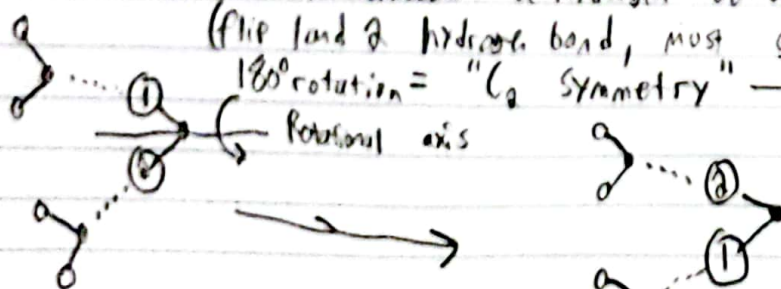 (flip 1 and 2 hydrogen bond, must
180° rotation = "C₂ symmetry" —
1
Rotational axis
2
2
1